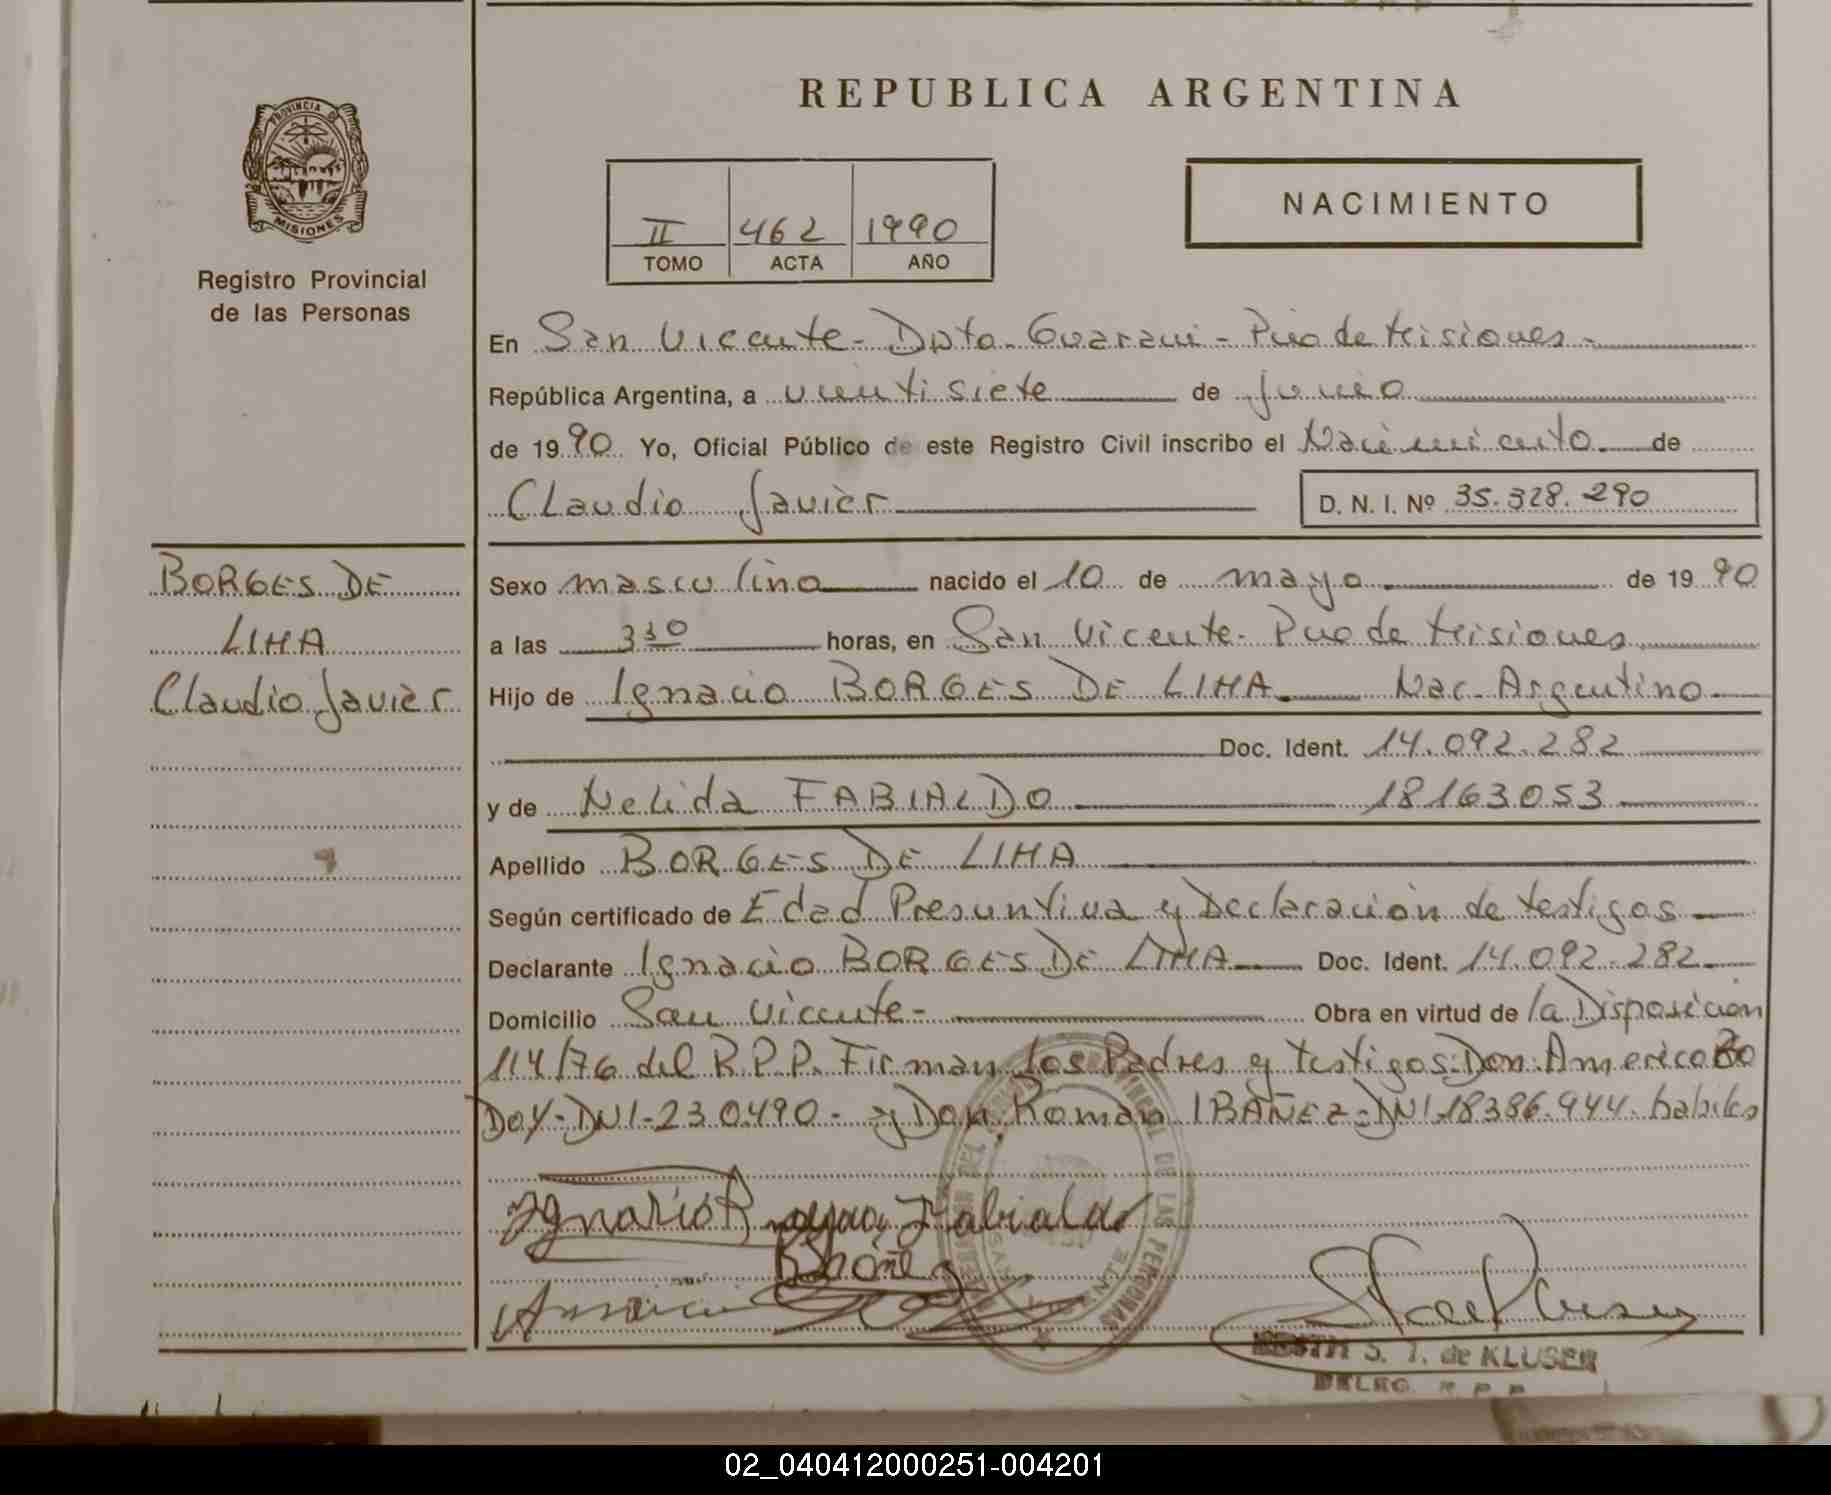 REPUBLICA ARGENTINA
PROVINCIA DE
MISIONES
Registro Provincial
de las Personas
II 462 1990
TOMO ACTA AÑO
NACIMIENTO
En San Vicente - Dpto. Guarani - Pcia de Misiones -
República Argentina, a veintisiete de Junio
de 1990 Yo, Oficial Público de este Registro Civil inscribo el Nacimiento de
Claudio Javièr D. N. I. Nº 35.328.290
BORGES DE
LIMA
Claudio Javièr
Sexo masculino nacido el 10 de mayo de 1990
a las 3 30 horas, en San Vicente - Pcia de Misiones
Hijo de Ignacio BORGES DE LIMA. Nac. Argentino
Doc. Ident. 14.092.282
y de Nelida FABIALDO 18163053
Apellido BORGES DE LIMA
Según certificado de Edad Presuntiva y Declaración de testigos
Declarante Ignacio BORGES DE LIMA Doc. Ident. 14.092.282
Domicilio San Vicente - Obra en virtud de la Disposición
114/76 del R.P.P. Firman los Padres y testigos: Don: Americo Bo
DOY - DNI - 230490 - y Don. Roman IBAÑEZ - DNI 18386.944. habiles
Fabialdo
S. T. de KLUSER
DELEG. R. P. P.
02_040412000251-004201